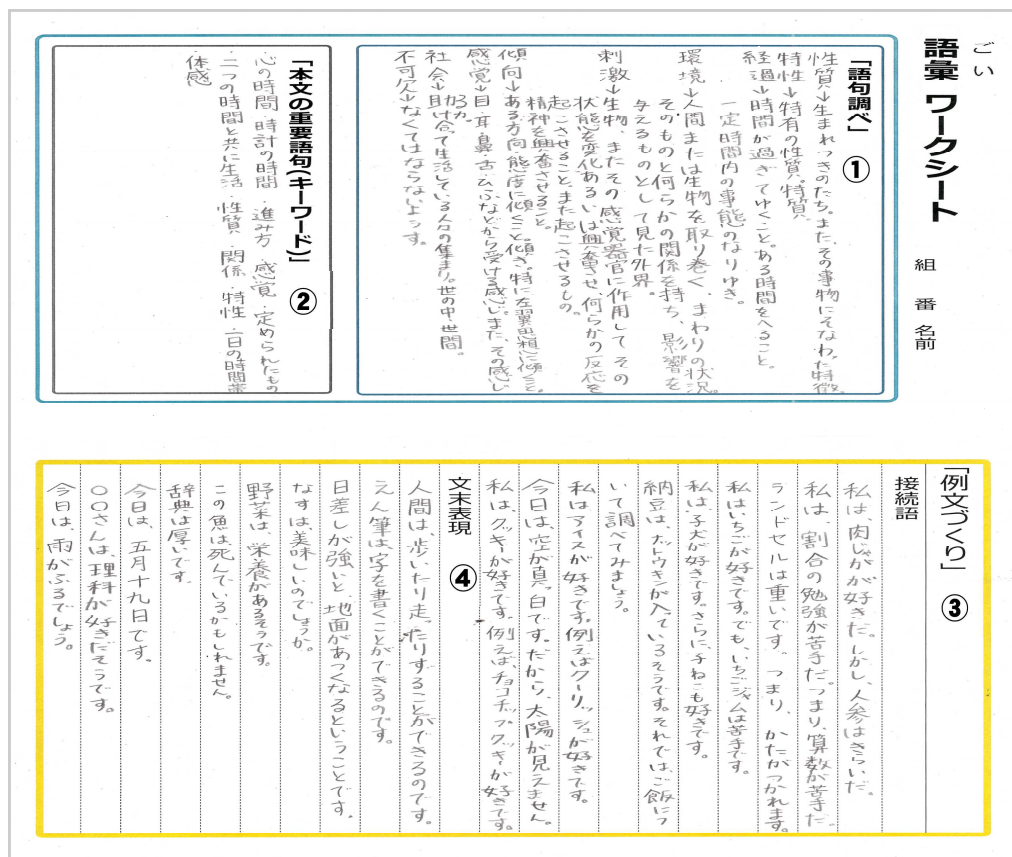 ごい
語彙 ワークシート
組 番 名前
「語句調べ」 ①
性質→生まれつきのたち。また、その事物にそなわった特徴。
特性→特有の性質。特質。
経過→時間が過ぎてゆくこと。ある時間をへること。
一定時間内の事態のなりゆき。
環境→人間または生物を取り巻く、まわりの状況。
そのものと何らかの関係を持ち、影響を
与えるものとして見た外界。
刺激→生物、またその感覚器官に作用してその
状態を変化あるいは興奮させ、何らかの反応を
起こさせること、また起こさせるもの。
精神を興奮させること。
傾向→ある方向、態度に傾くこと。傾き。特に左翼思想に傾くこと。
感覚→目・耳・鼻・舌・ひふなどから受ける感じ。また、その感じ
る力。
社会→助け合って生活している人々の集まり。世の中。世間。
不可欠→なくてはならないようす。
「本文の重要語句(キーワード)」 ②
心の時間 時計の時間 進み方 感覚 定められたもの
二つの時間と共に生活 性質 関係 特性 一日の時間帯
体感
「例文づくり」 ③
接続語
私は、肉じゃがが好きだ。しかし、人参はきらいだ。
私は、割合の勉強が苦手だ。つまり、算数が苦手だ。
ランドセルは重いです。つまり、かたがつかれます。
私はいちごが好きです。でも、いちごジャムは苦手です。
私は、子犬が好きです。さらに、子ねこも好きです。
納豆は、ナットウキンが入っているそうです。それでは、ご飯につ
いて調べてみましょう。
私はアイスが好きです。例えばクーリッシュが好きです。
今日は、空が真っ白です。だから、太陽が見えません。
私は、クッキーが好きです。例えば、チョコチップクッキーが好きです。
文末表現 ④
人間は、歩いたり走ったりすることができるのです。
えん筆は、字を書くことができるのです。
日差しが強いと、地面があつくなるということです。
なすは、美味しいのでしょうか。
野菜は、栄養があるそうです。
この魚は、死んでいるかもしれません。
辞典は厚いです。
今日は、五月十九日です。
〇〇さんは、理科が好きだそうです。
今日は、雨がふるでしょう。